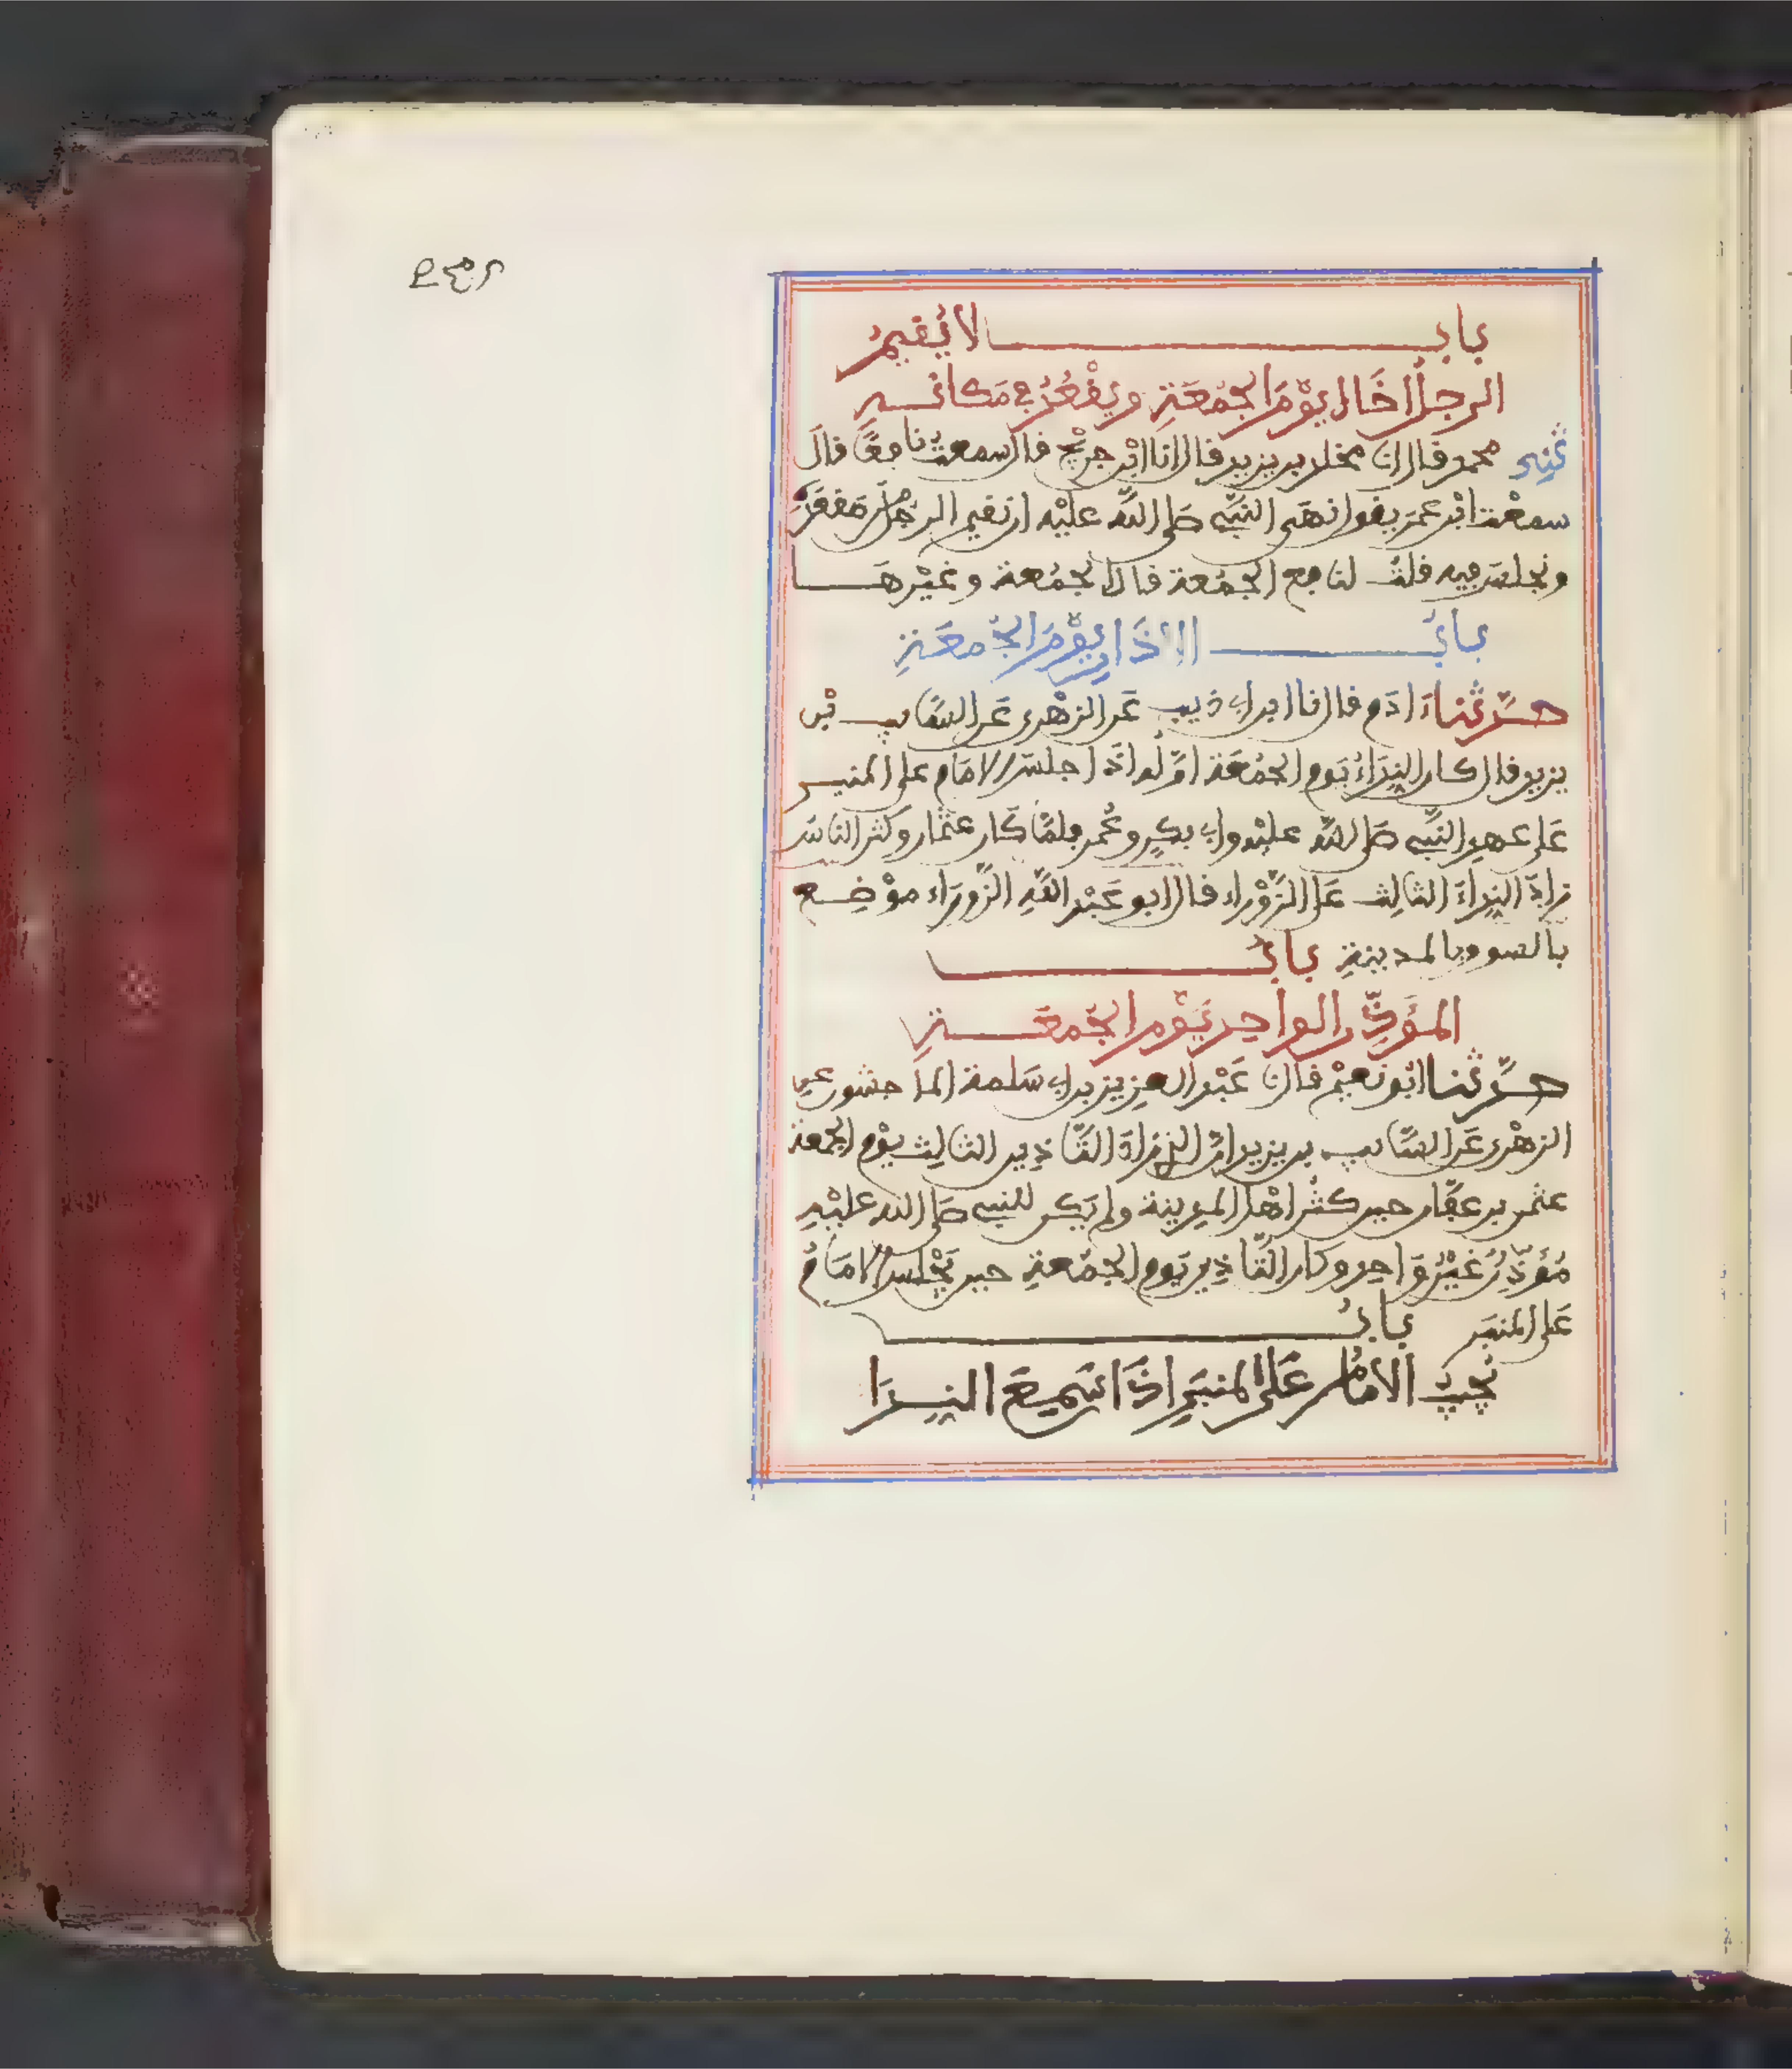 باب لا يُقيمُ
الرجلُ اخَاه يوْمَ الجُمُعَةِ ويقْعُدُ في مَكانه
ثني محمد قال انا مخلد بن يزيد قال انا ابْن جريْج قال سمعتُ نافعًا قالَ
سمعْت ابْن عمَرَ يقول نهَى النبَّي صَلى اللَّه عليْه ان يقيم الرجُل من مَقعَدِه
ويجلسَ فيه قلتُ لنافع الجمُعة قال الجمُعة وغيْرهَا
بابُ الاذَانِ يوْمَ الجُمعَةِ
حدَّثنا ءَادَم قال نا ابن ابي ذيب عَن الزهْري عَن السَّايب بْن
يزيد قال كان النِدَاءُ يَوم الجُمُعَة اوَّله اذَا جلسَ الامَام على المنبر
عَلى عهدِ النبَّي صَلى اللَّه عليْه وابي بكرٍ وعُمر فلمَّا كان عثمان وكثر الناسُ
زادَ النِداءَ الثالِث عَلى الزَّوْراء قال ابو عَبْد اللَّهِ الزَّورَاء موْضِع
بالسوق بالمدينةِ بابُ
المؤَذِّن الواحِد يَوْم الجُمعَةِ
حدَّثنا ابُو نعيْم قال نا عَبْد العزيز بن ابي سَلمة الماجشون عن
الزهْري عَن السَّايب بن يزيد انَّ الذي زادَ التَّاذِين الثالِث يوْم الجمعة
عثمن بن عفَّان حين كثُر اهْل المدِينة ولم يَكن للنبي صَلى الله عليْهِ
مُؤَذِّنٌ غيْرُ وَاحِد وكان التَّاذِين يَوم الجمُعةِ حين يَجْلس الامَامُ
عَلى المنبَر بابُ
يُجيبُ الامَامُ عَلى المنبَرِ اذَا سَمِعَ النِدَا